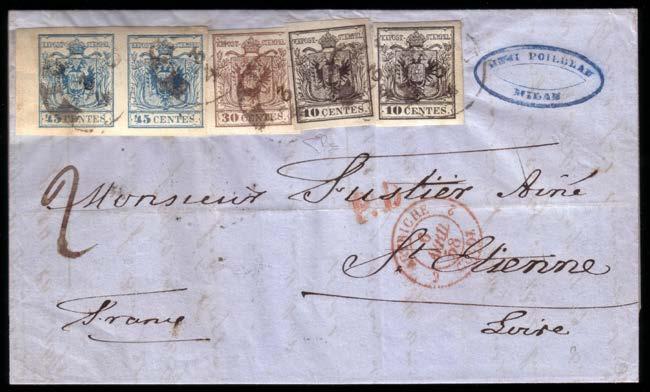 K.K.POST-STEMPEL
K.K.POST-STEMPEL
K.K.POST-STEMPEL
K.K.POST-STEMPEL
K.K.POST-STEMPEL
45 CENTES.
45 CENTES.
30 CENTES.
10 CENTES.
10 CENTES.
POILBLAN
MILAN
2
Monsieur Fustier Ainé
P.D.
AUTRICHE 2
8
AVRIL
58
St Etienne
Loire
France